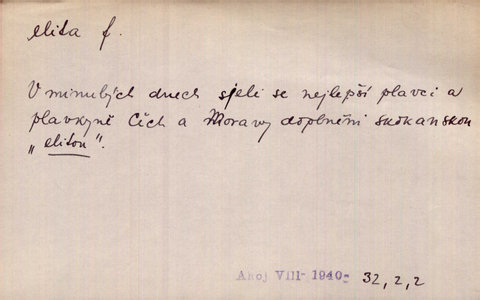 elita f.
V minulých dnech sjeli se nejlepší plavci a
plavkyně Čech a Moravy doplněni skokanskou
„elitou“.
Ahoj VIII- 1940- 32, 2, 2